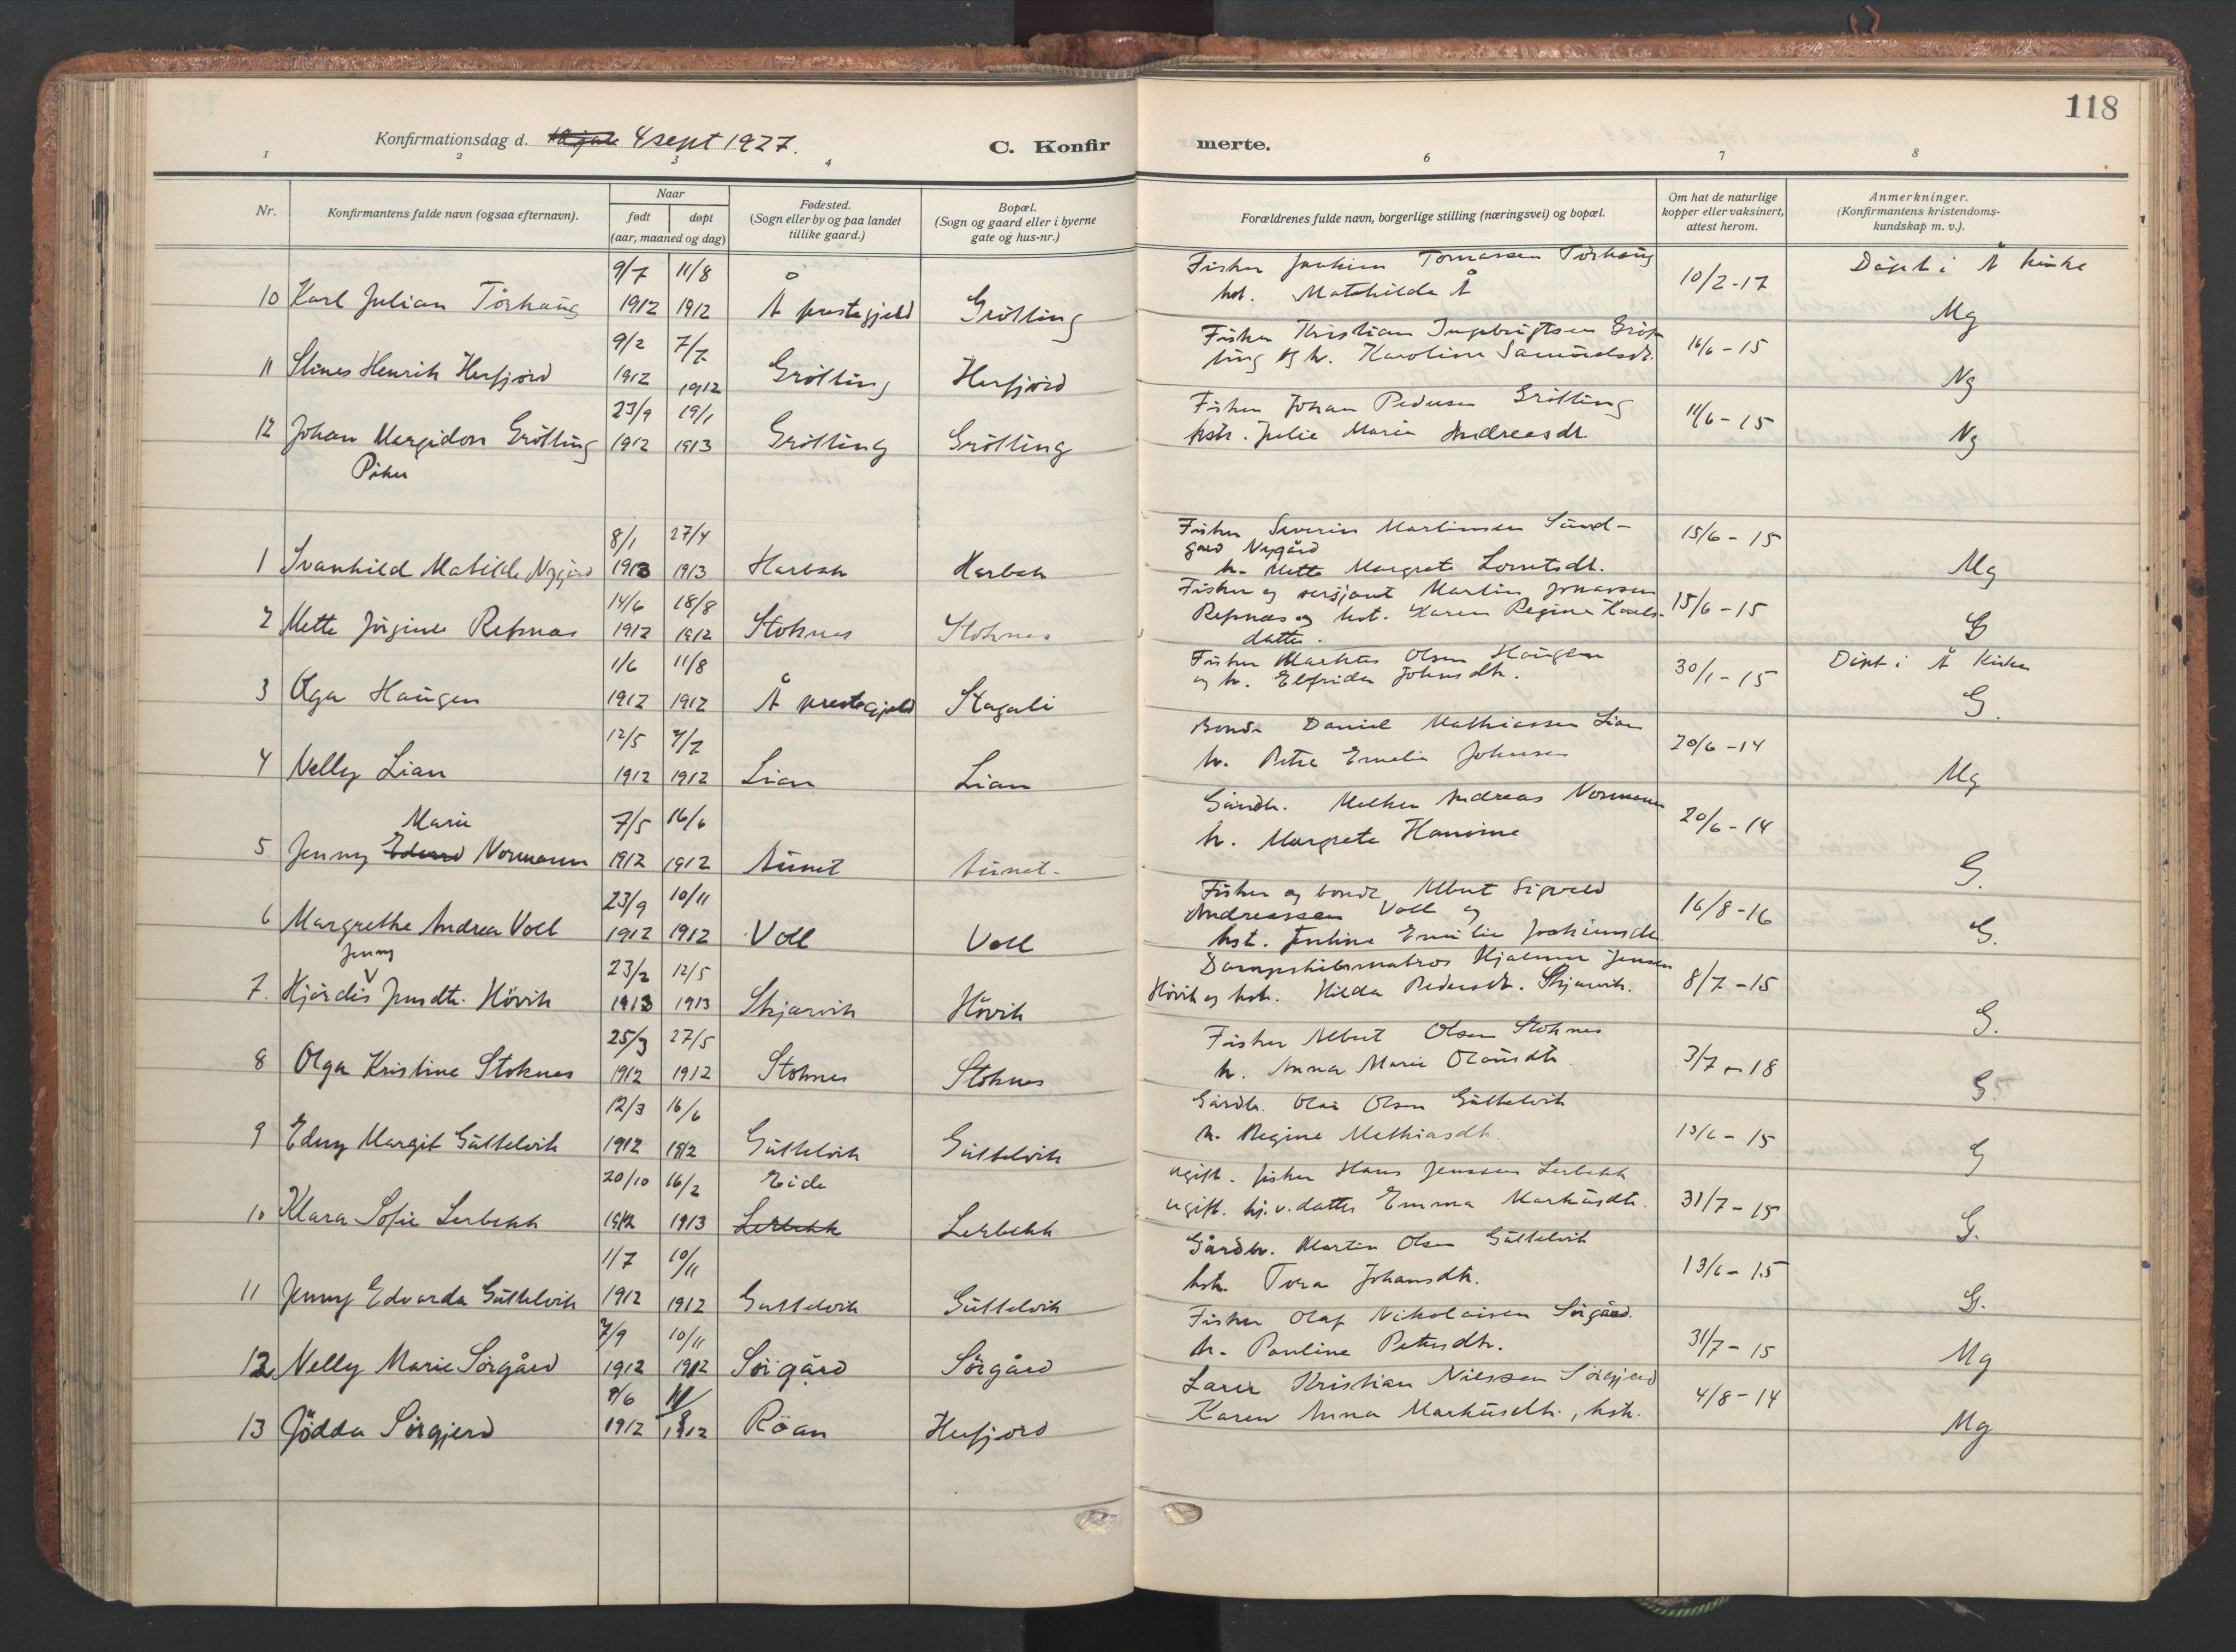 118
Konfirmationsdag d. 4 sept 1927.
C. Konfirmerte.
1 2 3 4 6 7 8
Nr.
Konfirmantens fulde navn (ogsaa efternavn).
Naar
født døpt
(aar, maaned og dag)
Fødested.
(Sogn eller by og paa landet
tillike gaard.)
Bopæl.
(Sogn og gaard eller i byerne
gate og hus-nr.)
Forældrenes fulde navn, borgerlige stilling (næringsvei) og bopæl.
Om hat de naturlige
kopper eller vaksinert,
attest herom.
Anmerkninger.
(Konfirmantens kristendoms-
kundskap m. v.).
9/7 11/8 Fisker Joakim Tomassen Törhaug Döpt i Å kirke
10 Karl Julian Törhaug 1912 1912 Å prestegjeld Grötting Mathilde Å 10/2-17 Mg
9/2 7/7 Fisker Kristian Ingebrigtsen Gröt-
11 Henrik Herfjord 1912 1912 Grötting Herfjord ting og h. Karoline 16/6-15 Ng
23/9 19/1 Fisker Johan Pedersen Grötting
12 Johan Margidon Grötting 1912 1913 Grötting Grötting hstr. Julie Marie Andreasdt. 11/6-15 Ng
Piker
8/1 27/4 Fisker Severin Martinsen Sund-
gard Nygård 15/6-15
1 Svanhild Matilde Nygård 1913 1913 Harbak Harbak h. Mette Margrete Lorntsdt. Mg
14/6 18/8 Fisker og sersjant Martin Jonassen
2 Mette Jörgine Refsnes 1912 1912 Stoknes Stoknes Refsnes og hst. Karen Regine Karls- 15/6-15
datter.
1/6 11/8 Fisker Markus Olsen Haugen Döpt i Å kirke
3 Olga Haugen 1912 1912 Å prestegjeld Skagali og h. Elfrida Johnsdtr. 30/1-15 G.
12/5 7/7 Bonde Daniel Mathiassen Lian
4 Nelly Lian 1912 1912 Lian Lian h. Petra Emelie Johnsen 20/6-14 Mg
Marie 7/5 16/6 Gårdb. Melker Andreas Normann
5 Jenny Normann 1912 1912 Aunet Aunet. h. Margrete Hansine 20/6-14 G.
23/9 10/11 Fisker og bonde Albert Sigvald
6 Margrethe Andrea Voll 1912 1912 Voll Voll Andreassen Voll og 16/8-16 G.
hst. Emilie Joakimsdt.
Jenny 23/2 12/5 Dampskibsmatros Hjalmar Jensen
7. Hjördis Jensdtr. Hövik 1913 1913 Skjærvik Hövik Hövik og hstr. Hilda Pedersdt. Skjærvik. 8/7-15 G.
25/3 27/5 Fisker Albert Olsen Stoknes
8 Olga Kristine Stoknes 1912 1912 Stoknes Stoknes h. Anna Marie Olausdtr. 3/7-18 G
12/3 16/6 Gårdb. Olai Olsen Guttelvik
9 Edny Margit Guttelvik 1912 1912 Guttelvik Guttelvik h. Regine Mathiasdt. 13/6-15 G
20/10 16/2 Eide ugift. fisker Hans Jenssen Lerbekk
10 Klara Sofie Lerbekk 1912 1913 Lerbekk Lerbekk ugift. hj.v. datter Emma Markusdtr. 31/7-15 G.
1/7 10/11 Gårdbr. Martin Olsen Guttelvik
11 Jenny Edvarda Guttelvik 1912 1912 Guttelvik Guttelvik hstr. Tora Johansdtr. 13/6-15 G.
7/9 10/11 Fisker Olaf Nikolaisen Sörgård.
12 Nelly Marie Sörgård 1912 1912 Sörgård Sörgård h. Pauline Petersdtr. 31/7-15 Mg
8/6 11/8 Lærer Kristian Nilssen Sörgjerd
13 Jödda Sörgjerd 1912 1912 Röan Herfjord Karen Anna Markusdtr., hstr. 4/8-14 Mg